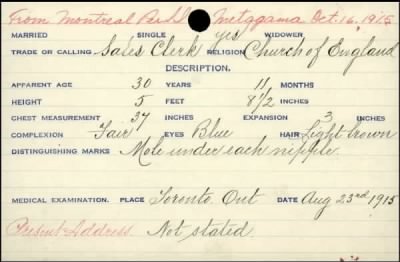 From Montreal Per S.S. Metagama Oct. 16, 1915
MARRIED SINGLE yes WIDOWER
TRADE OR CALLING Sales Clerk RELIGION Church of England
DESCRIPTION.
APPARENT AGE 30 YEARS 11 MONTHS
HEIGHT 5 FEET 8 1/2 INCHES
CHEST MEASUREMENT 37 INCHES EXPANSION 3 INCHES
COMPLEXION Fair EYES Blue HAIR Light brown
DISTINGUISHING MARKS Mole under each nipple.
MEDICAL EXAMINATION. PLACE Toronto. Ont DATE Aug 23rd 1915
Present Address. Not stated.